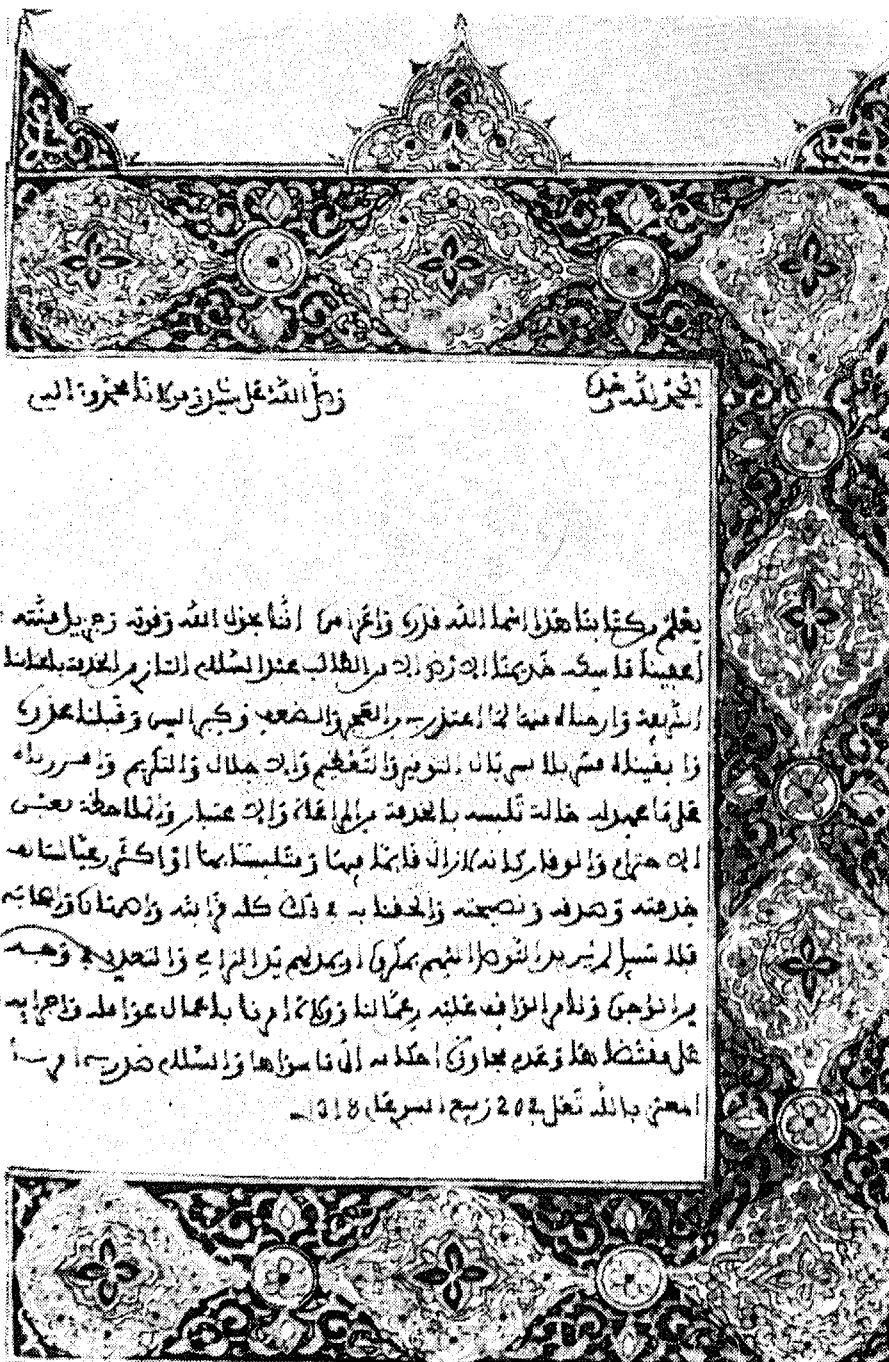 الحمد لله وحده وصلى الله على سيدنا ومولانا محمد وآله
يعلم من كتابنا هذا أسما الله قدره وأعز أمره أننا بحول الله وقوته وجزيل منته
أعفينا ماسكه خديمنا الطالب عبد السلام التازي من الخدمة بأعتابنا
الشريفة وأرحناه منها لما اعتذر به من العجز والضعف وكبر السن وقبلنا عذره
وأبقيناه مسربلا سربال التوقير والتعظيم والإجلال والتكريم وأقررناه
على ما عهد له حالة تلبسه بالخدمة من المراعاة والاعتبار والملاحظة بعين
الاحترام والوقار كأنه لازال قائما فيها ومتلبسا بها أو أكثر رعيا لسابق
خدمته وصدقه ونصيحته وألحقنا به في ذلك كله قرابته وأصهاره
فلا سبيل لمن يريد التوصل إليهم بمكروه أو يمد لهم يد الترامي والتعدي في وجه
من الوجوه ونأمر الواقف عليه من عمالنا وولاة أمرنا بإعمال عوامله وإجرائه
على مقتضاه وعدم مجاوزة أحكامه إلى ما سواها والسلام صدر به أمرنا
المعتز بالله تعالى في 20 ربيع النبوي عام 1318